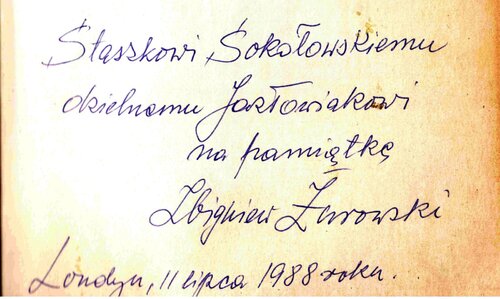 Staszkowi Sokołowskiemu
dzielnemu Jazłowiakowi
na pamiątkę
Zbigniew Żurowski
Londyn, 11 lipca 1988 roku.